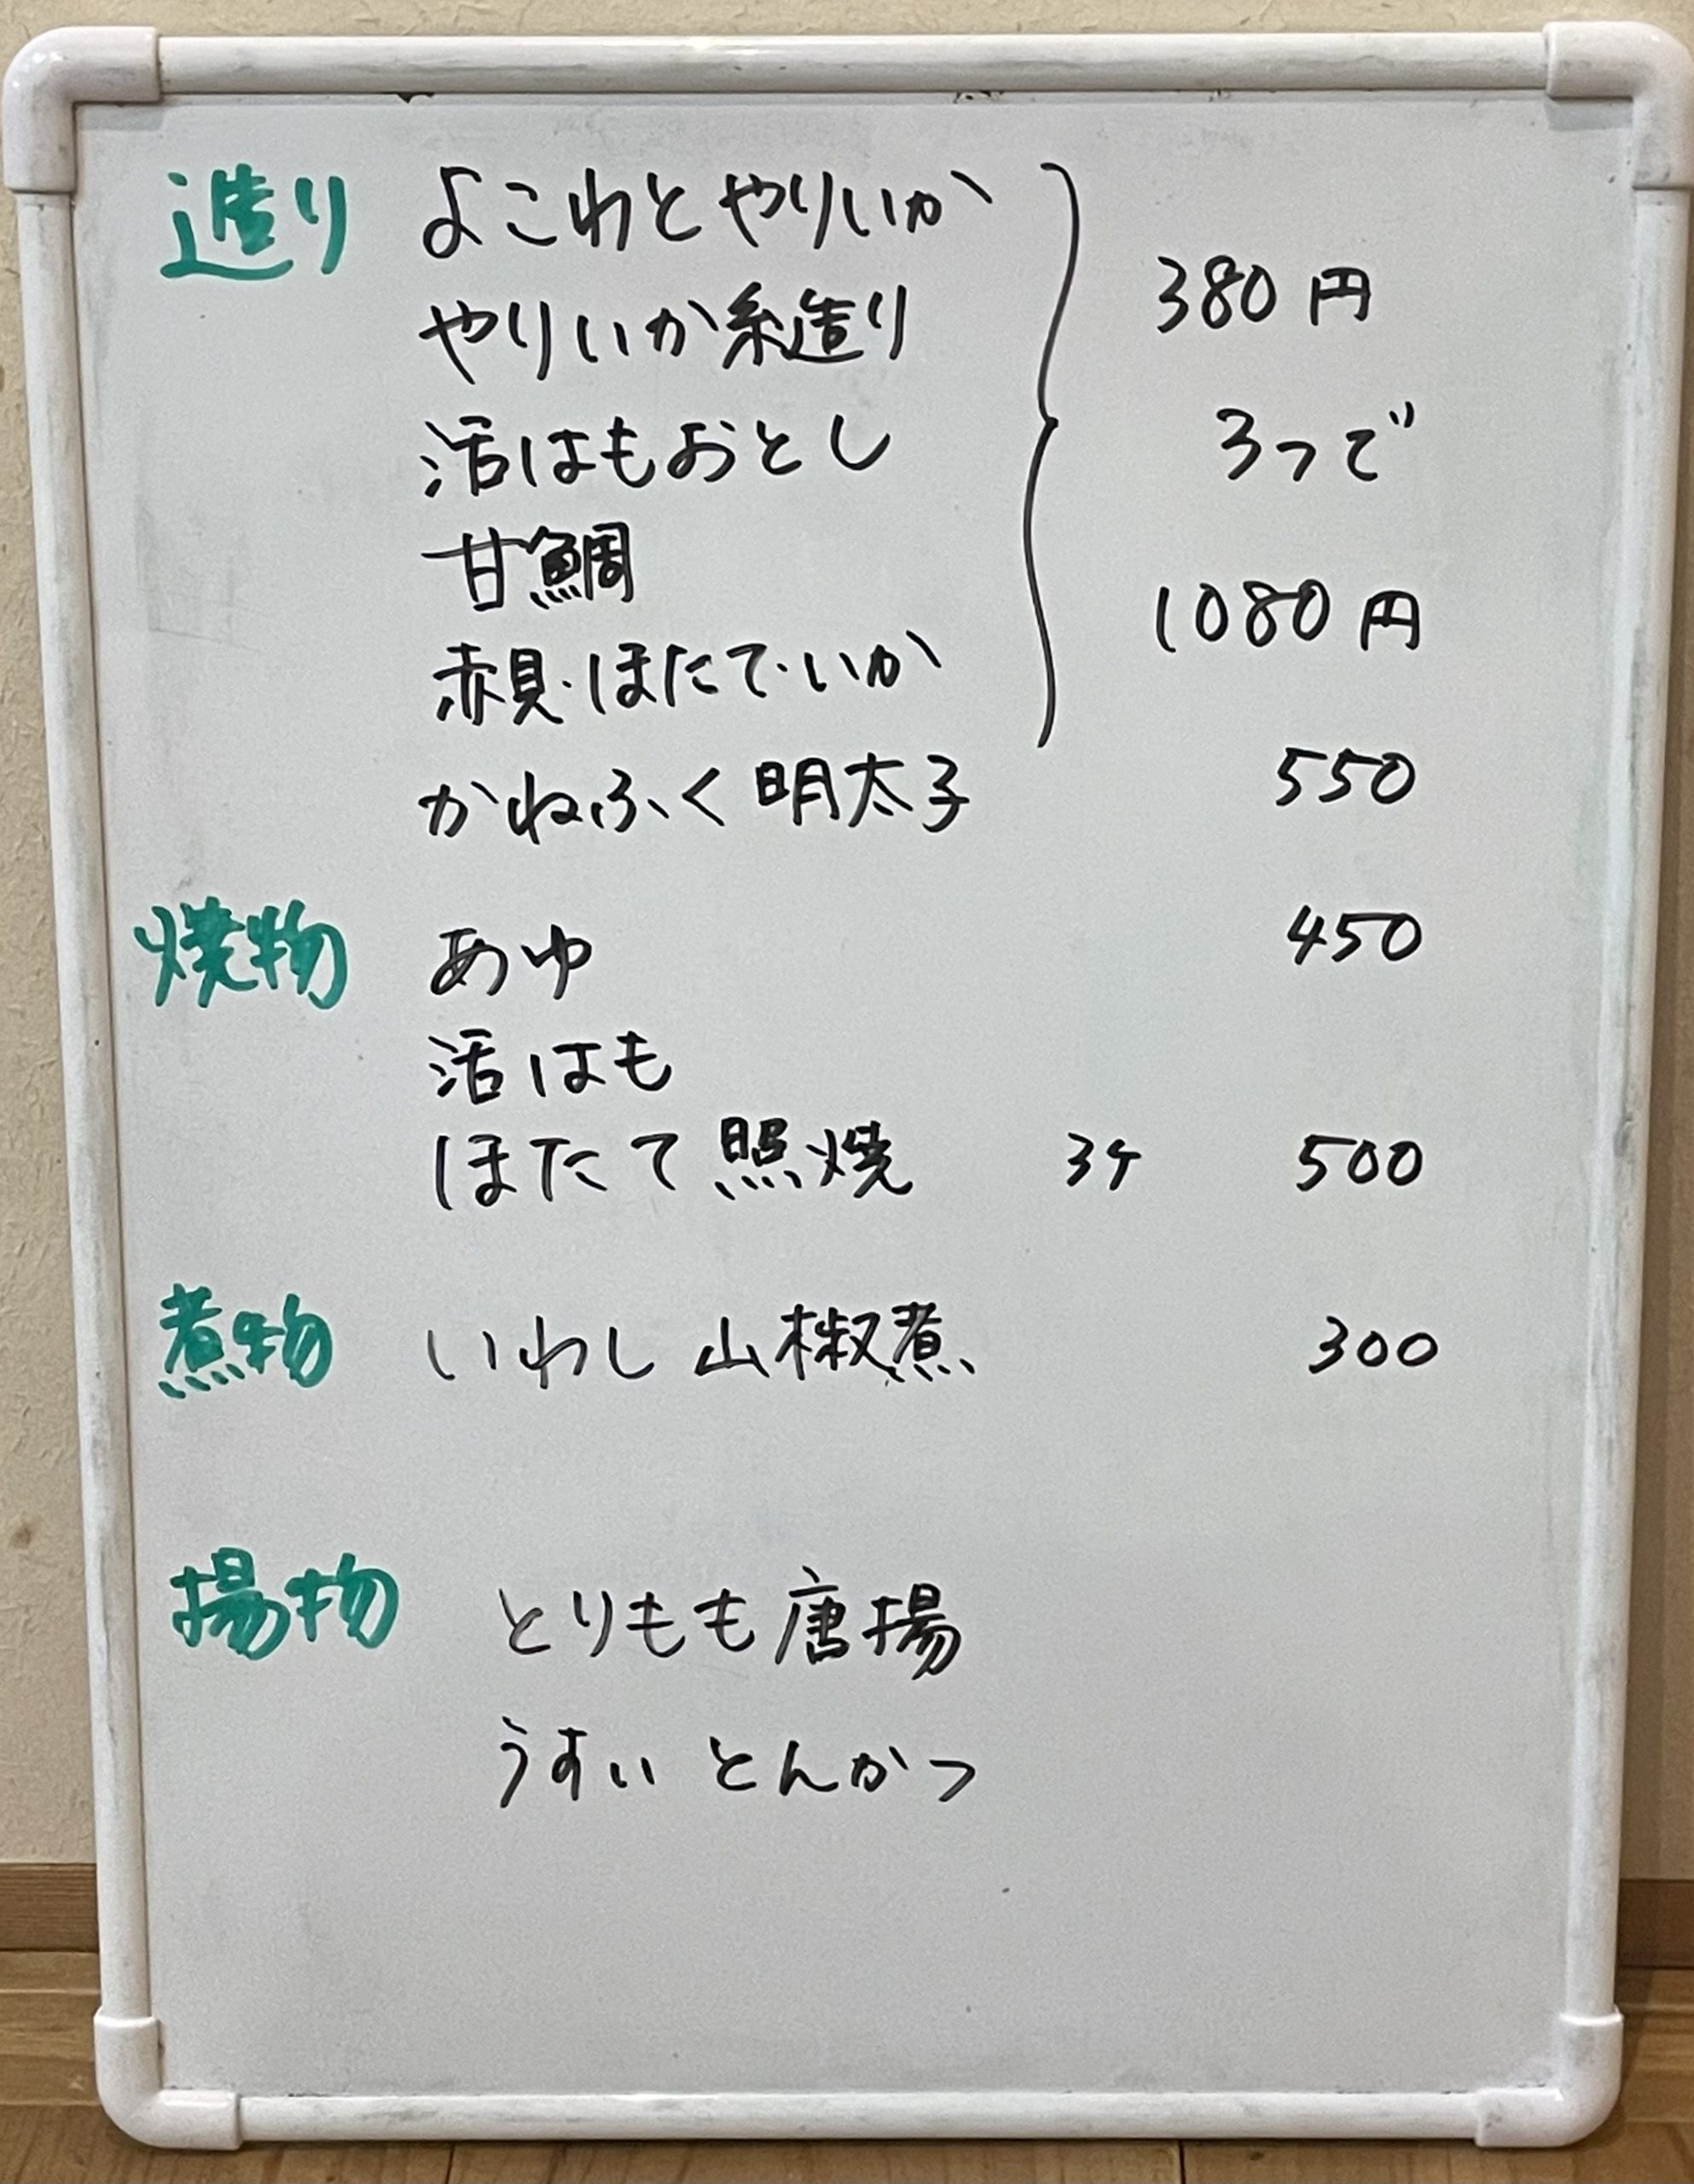 造り よこわとやりいか
やりいか糸造り 380円
活はもおとし 3つで
甘鯛
赤貝・ほたて・いか 1080円
かねふく明太子 550
焼物 あゆ 450
活はも
ほたて照焼 3ケ 500
煮物 いわし山椒煮 300
揚物 とりもも唐揚
うすいとんかつ